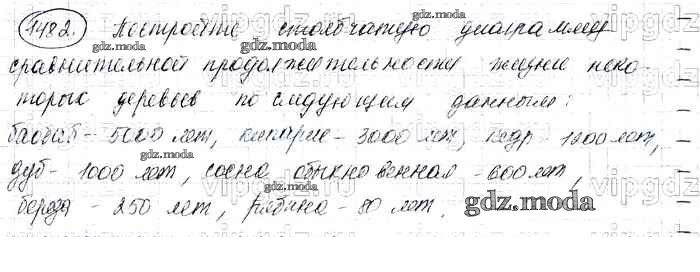 1482. Постройте столбчатую диаграмму
сравнительной продолжительности жизни неко-
торых деревьев по следующим данным:
баобаб - 5000 лет, кипарис - 3000 лет, кедр - 1200 лет,
дуб - 1000 лет, сосна обыкновенная - 600 лет,
береза - 250 лет, рябина - 80 лет.
gdz.moda
gdz.moda
gdz.moda
gdz.moda
gdz.moda
gdz.moda
gdz.moda
vipgdz
vipgdz
vipgdz